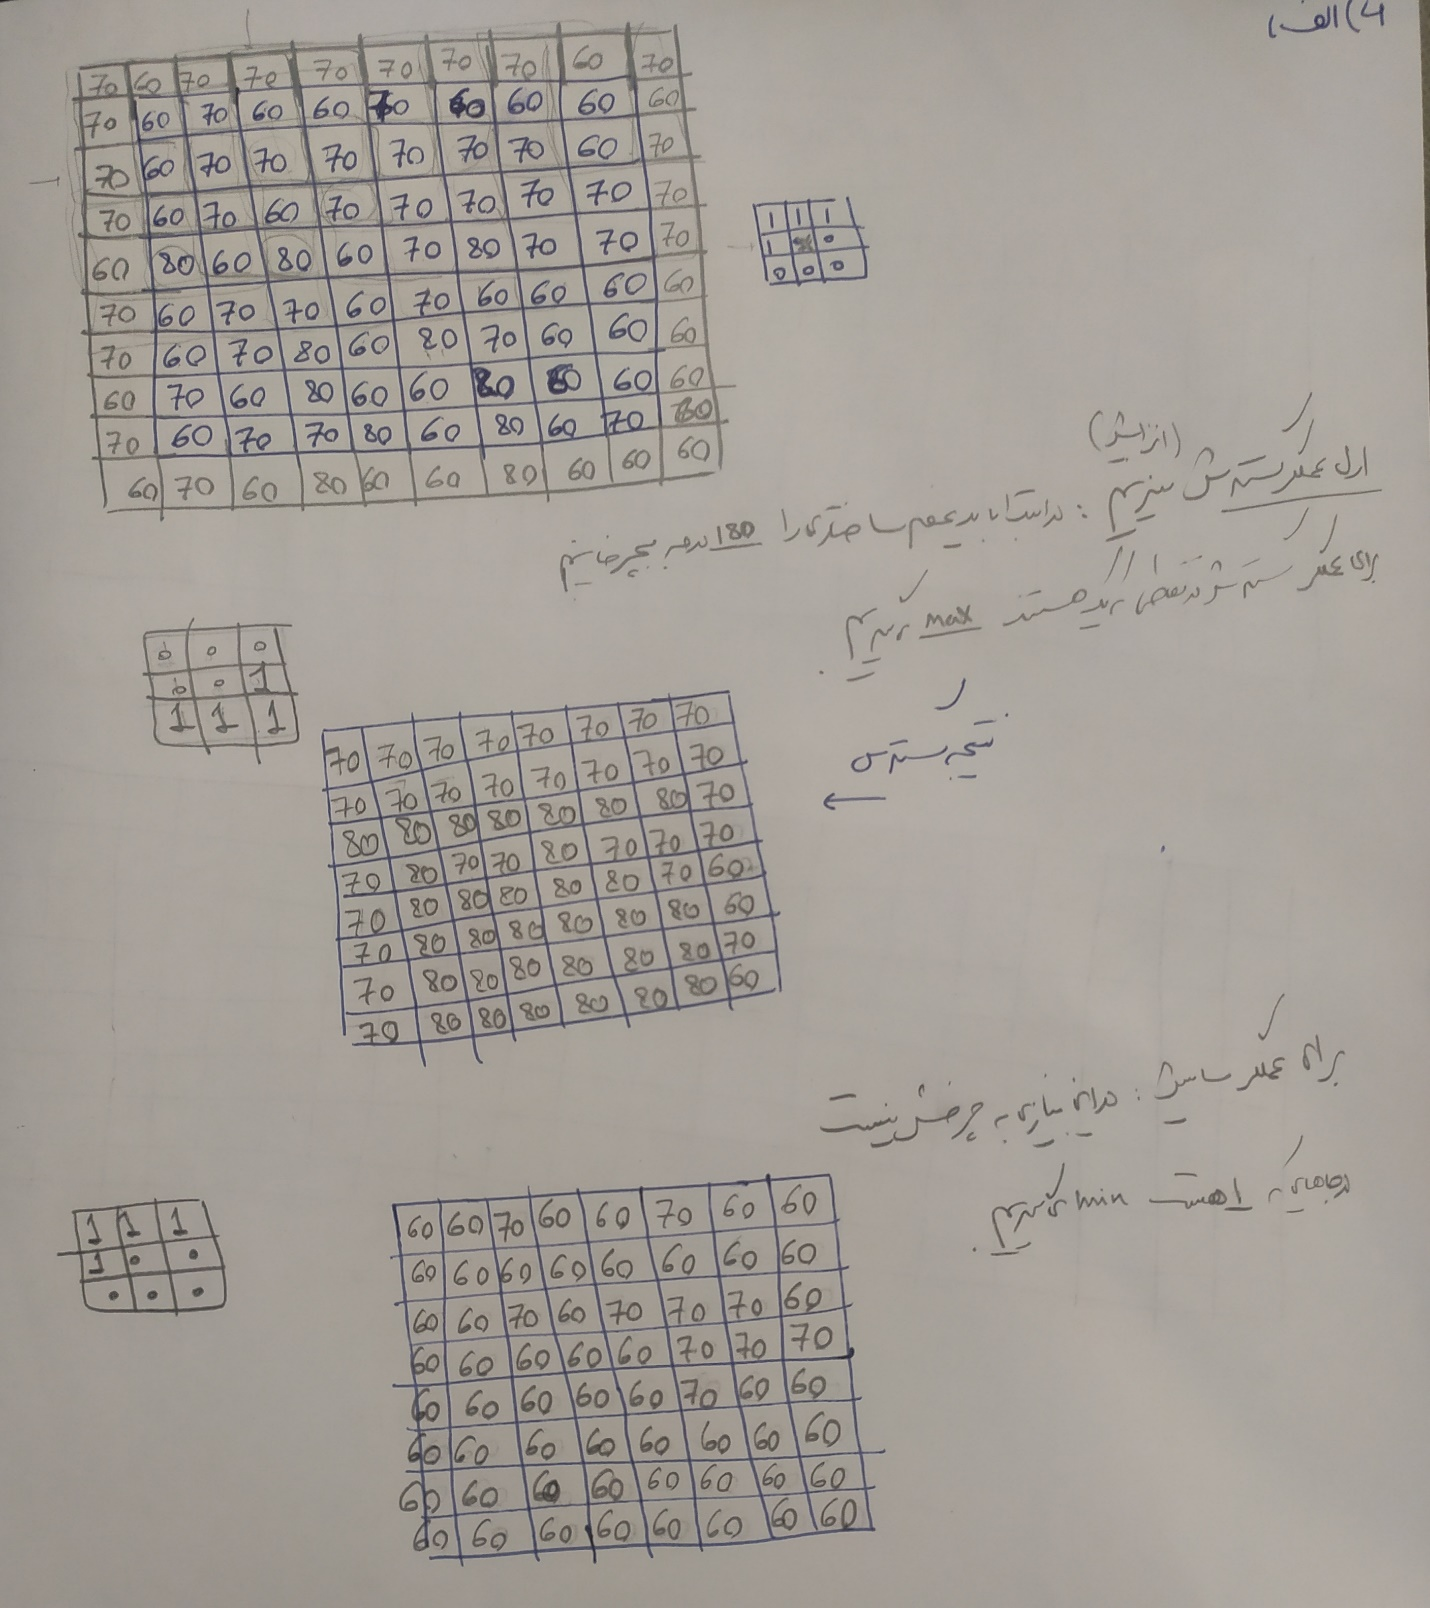 4) الف)
70 60 70 70 70 70 70 70 60 70
70 60 70 60 60 70 60 60 60 60
70 60 70 70 70 70 70 70 60 70
70 60 70 60 70 70 70 70 70 70
60 80 60 80 60 70 80 70 70 70
70 60 70 70 60 70 60 60 60 60
70 60 70 80 60 80 70 60 60 60
60 70 60 80 60 60 80 60 60
70 60 70 70 80 60 80 60 70 80
60 70 60 80 60 60 80 60 60 60
1 1 1
1 0
0 0 0
(افزایش)
اول عملگر گسترش میزنیم : در ابتدا باید عنصر ساختاری را 180 درجه بچرخانیم
برای عملگر گسترش در نقاطی که یک هستند max گیریم .
0 0 0
0 0 1
1 1 1
نتیجه گسترش
←
70 70 70 70 70 70 70 70
70 70 70 70 70 70 70 70
80 80 80 80 80 80 80 70
70 80 70 70 80 70 70 70
70 80 80 80 80 80 70 60
70 80 80 80 80 80 80 60
70 80 80 80 80 80 80 70
70 80 80 80 80 80 80 60
برای عملگر سایش : در این نیازی به چرخش نیست
درجاهایی که 1 هست min گیریم .
1 1 1
1 0 0
0 0 0
60 60 70 60 60 70 60 60
60 60 60 60 60 60 60 60
60 60 70 60 70 70 70 60
60 60 60 60 60 70 70 70
60 60 60 60 60 70 60 60
60 60 60 60 60 60 60 60
60 60 60 60 60 60 60 60
60 60 60 60 60 60 60 60